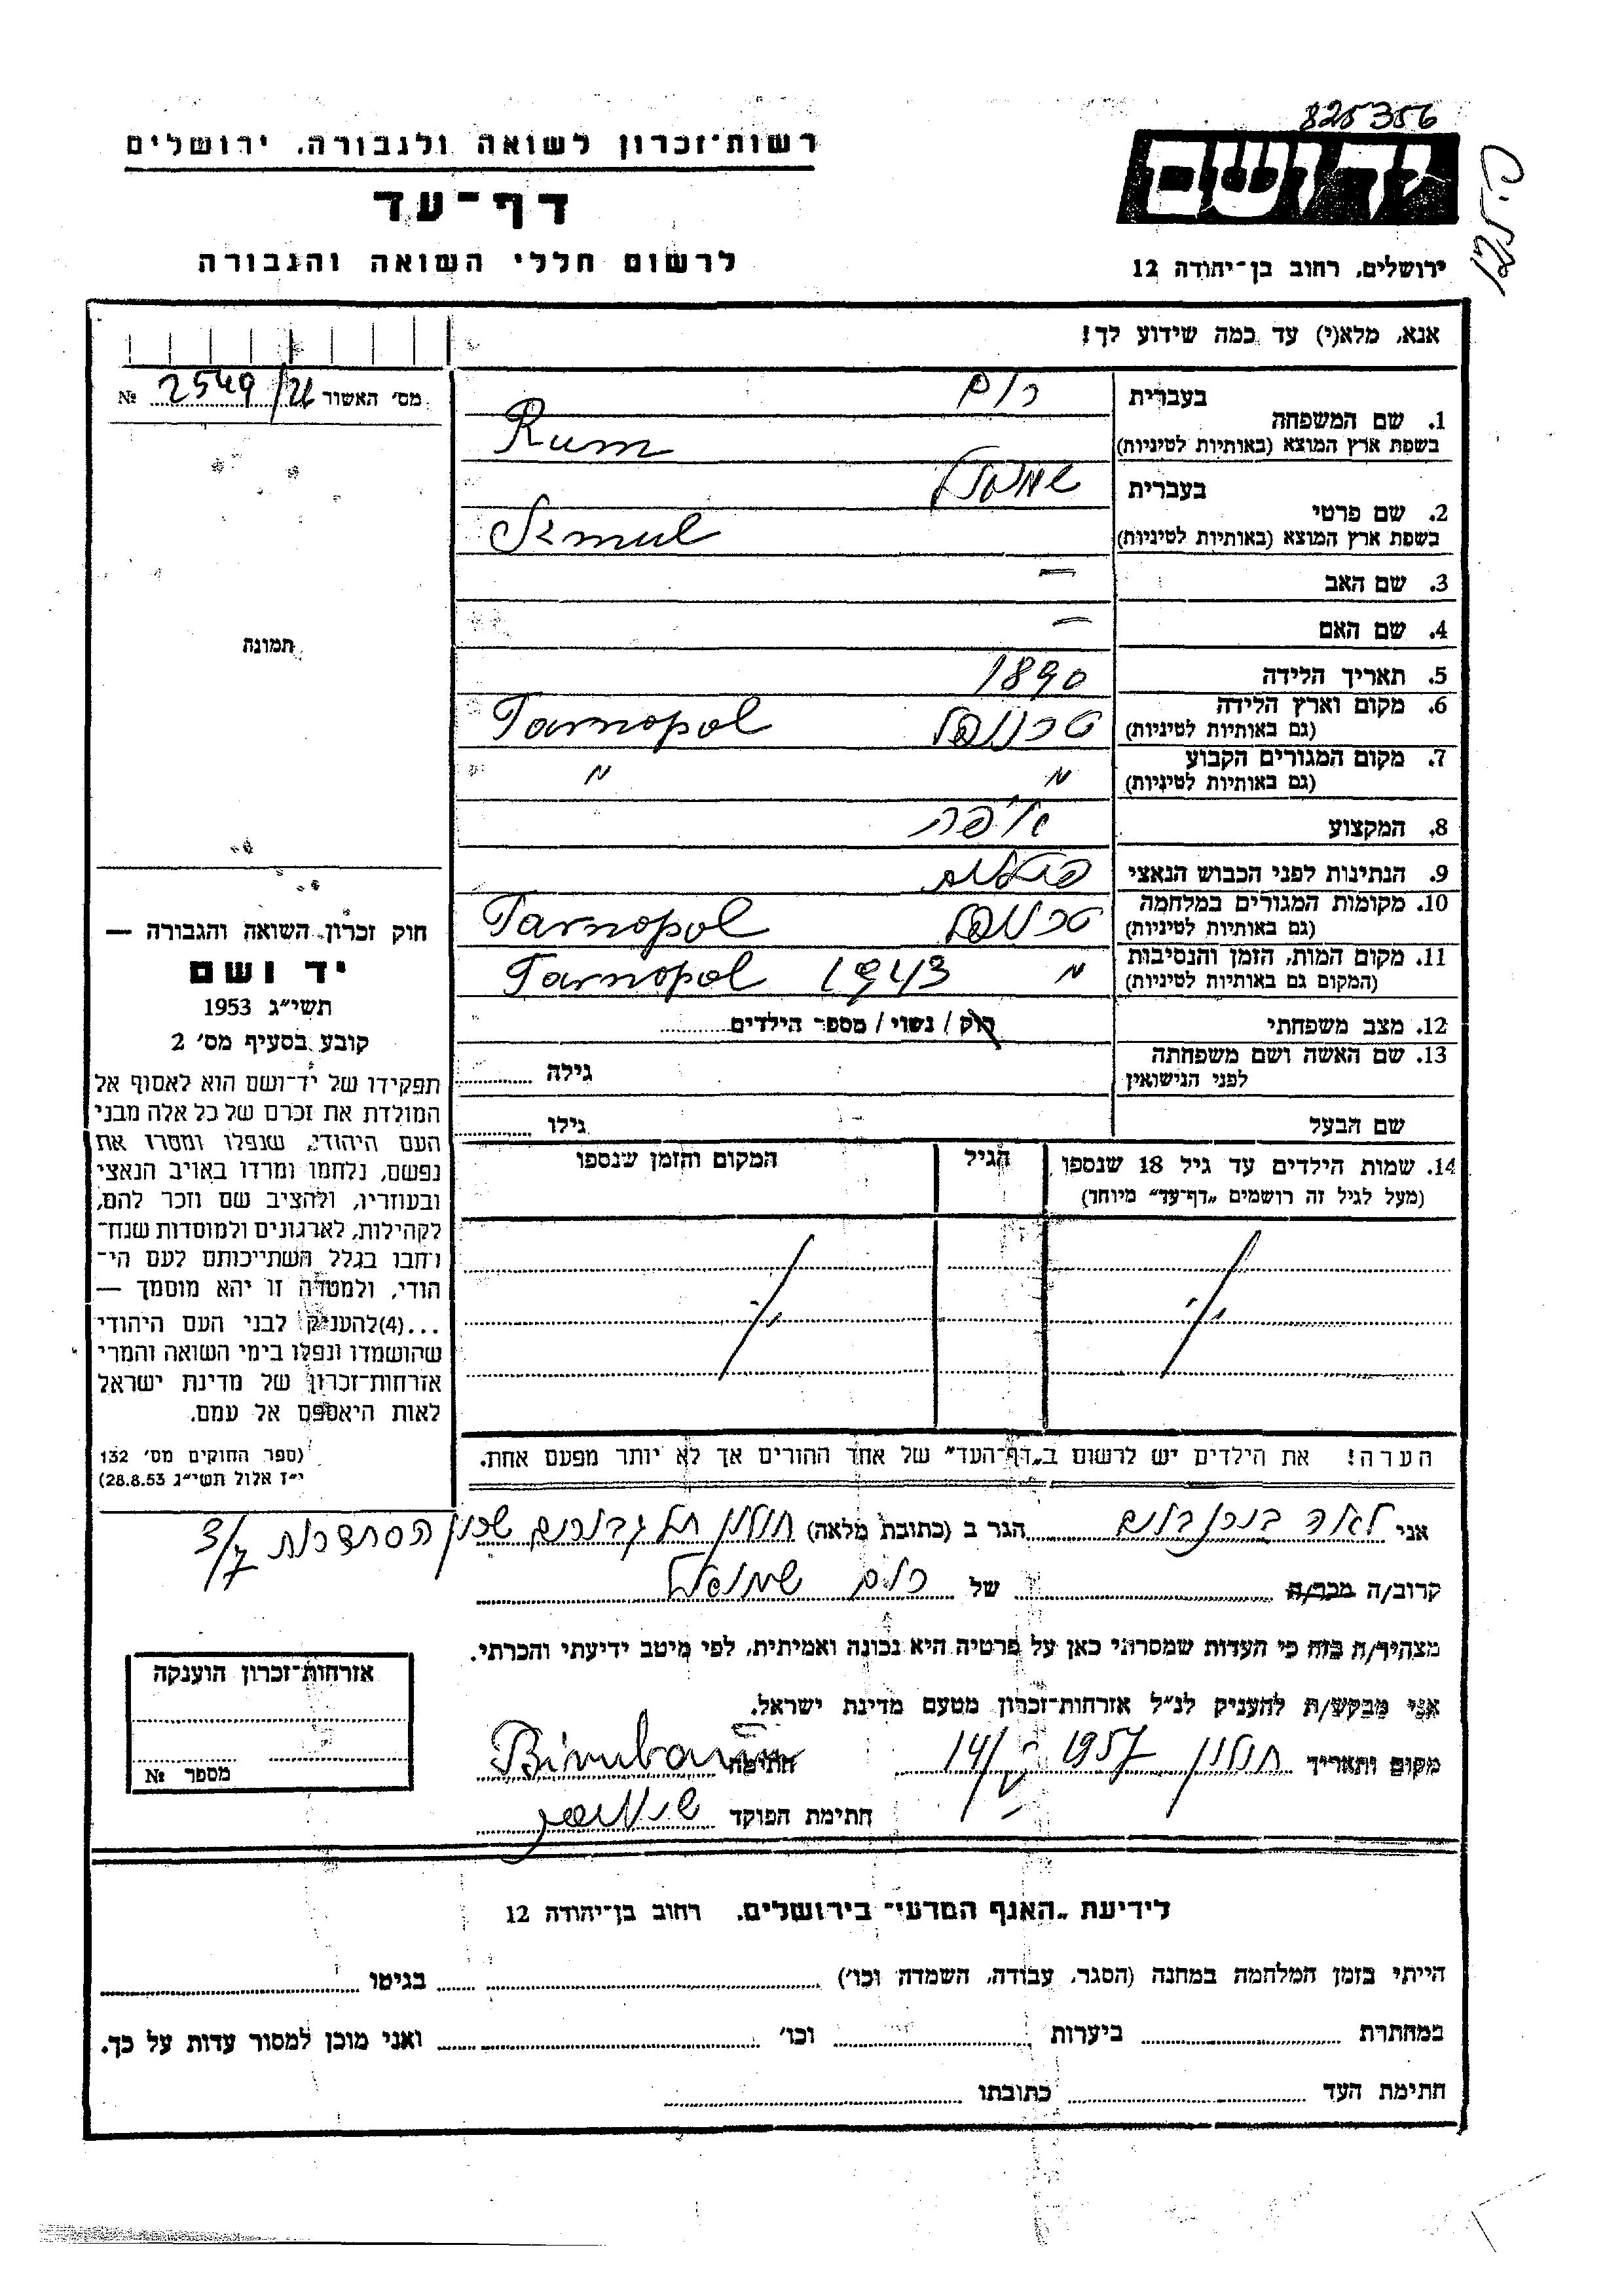 825356
רשות־זכרון לשואה ולגבורה, ירושלים
יד ושם
דף־עד
לרשום חללי השואה והגבורה
ירושלים, רחוב בן־יהודה 12
אנא, מלא(י) עד כמה שידוע לך!
מס׳ האשור 2549/26 №
בעברית רום
1. שם המשפחה
בשפת ארץ המוצא (באותיות לטיניות) Rum
בעברית שמואל
2. שם פרטי
בשפת ארץ המוצא (באותיות לטיניות) Szmul
3. שם האב —
4. שם האם —
תמונה
5. תאריך הלידה 1890
6. מקום וארץ הלידה
(גם באותיות לטיניות) טרנופול Tarnopol
7. מקום המגורים הקבוע
(גם באותיות לטיניות) " "
8. המקצוע
9. הנתינות לפני הכבוש הנאצי
10. מקומות המגורים במלחמה
(גם באותיות לטיניות) טרנופול Tarnopol
11. מקום המות, הזמן והנסיבות
(המקום גם באותיות לטיניות) " 1943 Tarnopol
12. מצב משפחתי רוק / נשוי / מספר הילדים
13. שם האשה ושם משפחתה
לפני הנישואין גילה
שם הבעל גילו
חוק זכרון השואה והגבורה —
יד ושם
תשי״ג 1953
קובע בסעיף מס׳ 2
תפקידו של יד־ושם הוא לאסוף אל
המולדת את זכרם של כל אלה מבני
העם היהודי, שנפלו ומסרו את
נפשם, נלחמו ומרדו באויב הנאצי
ובעוזריו, ולהציב שם וזכר להם,
לקהילות, לארגונים ולמוסדות שנח־
רחבו בגלל השתייכותם לעם הי־
הודי, ולמטרה זו יהא מוסמך —
...(4)להעניק לבני העם היהודי
שהושמדו ונפלו בימי השואה והמרי
אזרחות־זכרון של מדינת ישראל
לאות היאספם אל עמם.
(ספר החוקים מס׳ 132
י״ז אלול תשי״ג 28.8.53)
14. שמות הילדים עד גיל 18 שנספו הגיל המקום והזמן שנספו
(מעל לגיל זה רושמים „דף־עד״ מיוחד)
הערה! את הילדים יש לרשום ב„דף־העד״ של אחד ההורים אך לא יותר מפעם אחת.
אני לאה בירנבוים הגר ב (כתובת מלאה) חולון תל גבורים שכון הסתדרות 3/7
קרוב/ה מכר/ה של רום שמואל
מצהיר/ה בזה כי העדות שמסרתי כאן על פרטיה היא נכונה ואמיתית, לפי מיטב ידיעתי והכרתי.
אני מבקש/ת להעניק לנ״ל אזרחות־זכרון מטעם מדינת ישראל.
מקום ותאריך חולון 1957 14/V חתימה Birnbaum
חתימת הפוקד
אזרחות־זכרון הוענקה
מספר №
לידיעת „האגף המדעי״ בירושלים, רחוב בן־יהודה 12
הייתי בזמן המלחמה במחנה (הסגר, עבודה, השמדה וכו׳) בגיטו
במחתרת ביערות וכו׳ ואני מוכן למסור עדות על כך.
חתימת העד כתובתו